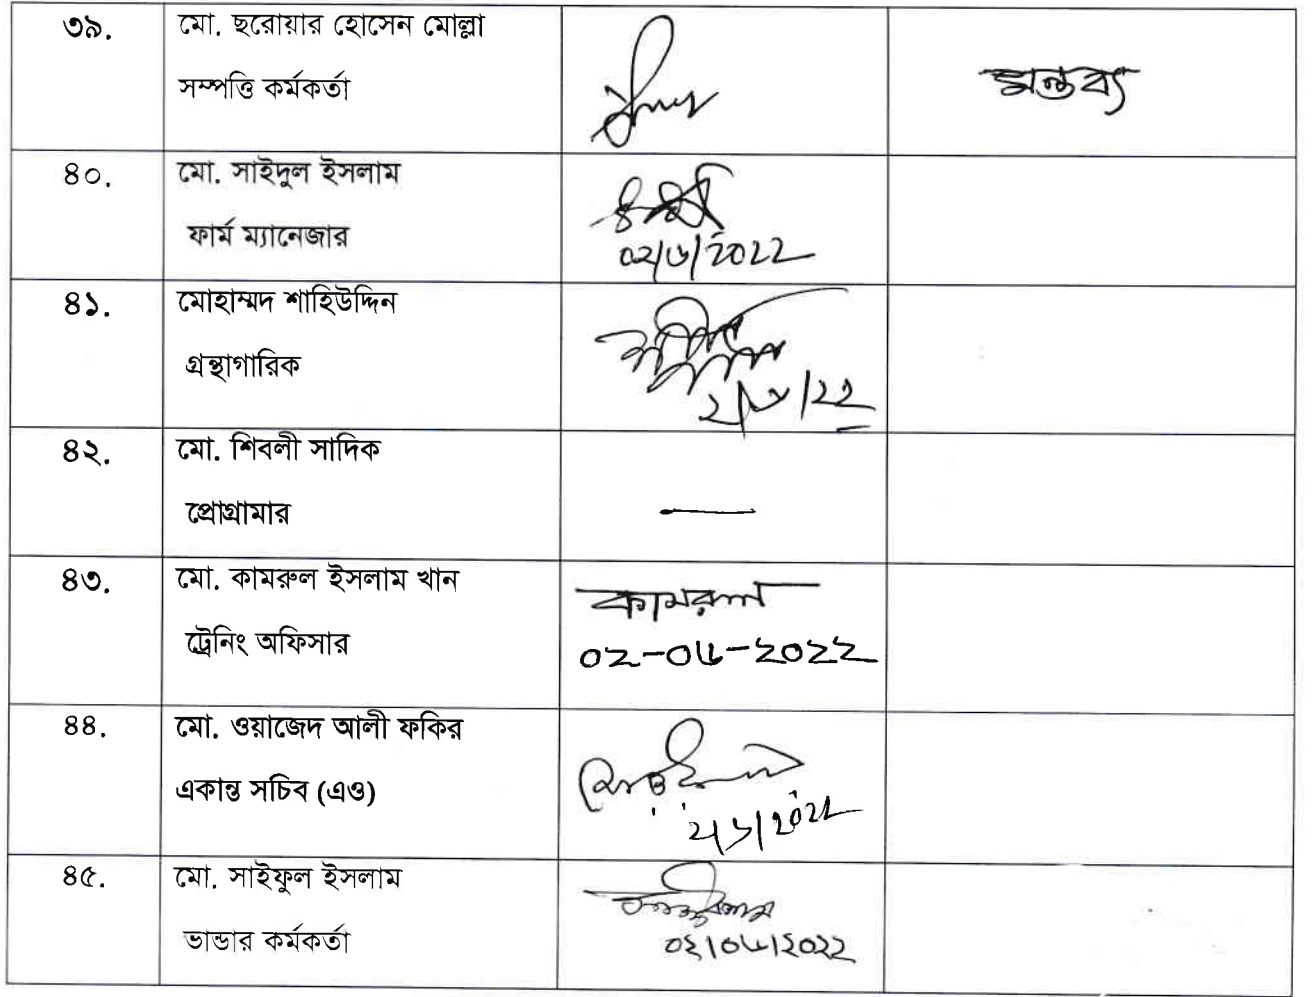 ৩৯.
মো. ছরোয়ার হোসেন মোল্লা
সম্পত্তি কর্মকর্তা
মন্তব্য
৪০.
মো. সাইদুল ইসলাম
ফার্ম ম্যানেজার
০২/৬/২০২২
৪১.
মোহাম্মদ শাহিউদ্দিন
গ্রন্থাগারিক
২/৬/২২
৪২.
মো. শিবলী সাদিক
প্রোগ্রামার
—
৪৩.
মো. কামরুল ইসলাম খান
ট্রেনিং অফিসার
কামরুল
০২-০৬-২০২২
৪৪.
মো. ওয়াজেদ আলী ফকির
একান্ত সচিব (এও)
২/৬/২০২২
৪৫.
মো. সাইফুল ইসলাম
ভান্ডার কর্মকর্তা
০২/০৬/২০২২